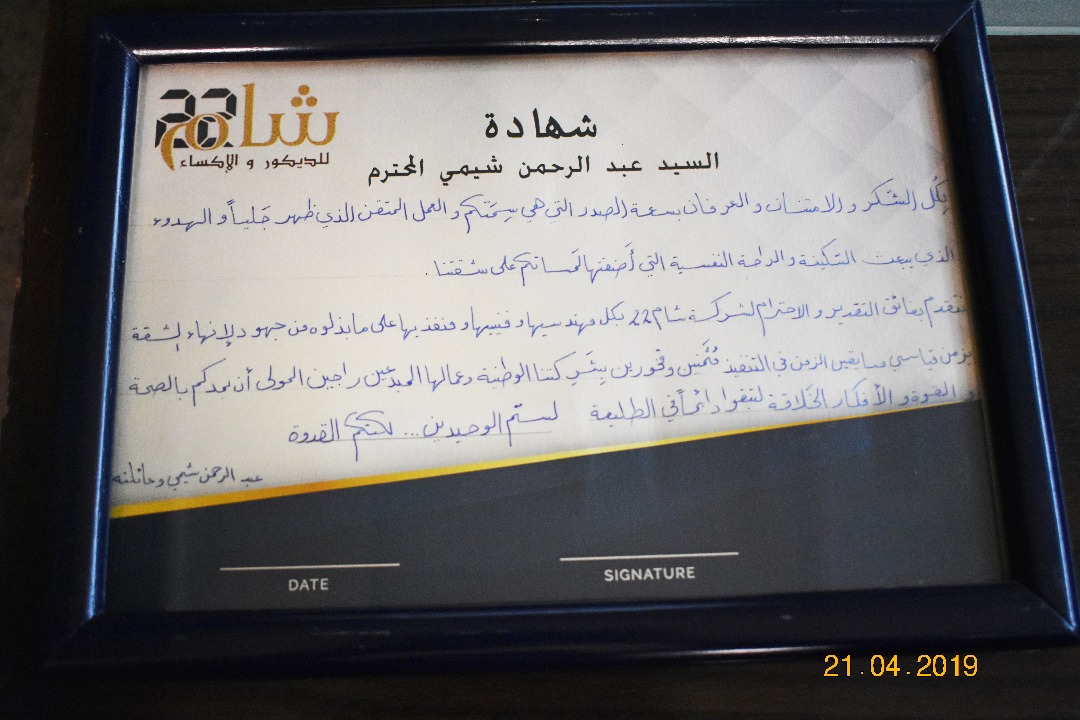 شام 22
للديكور و الإكساء
شهادة
السيد عبد الرحمن شيمي المحترم
بكُل الشكر و الامتنان و العرفان بسعة الصدر التي هي سِمَتكم و العمل المتقن الذي ظهر جَلياً و الهدوء
الذي يبعث السّكينة و الراحة النفسية التي أضفتها لمساتكم على شقتنا.
نتقدم بفائق التقدير و الاحترام لشركة شام 22 بكل مهندسيها و فنييها و منفذيها على ما بذلوه من جهود لإنهاء الشقة
بزمن قياسي مسابقين الزمن في التنفيذ مُثمّنين وفخورين بشركتنا الوطنية وعمالها المبدعين راجين المولى أن يمدكم بالصحة
و القوة و الأفكار الخلاقة لتبقوا دائماً في الطليعة لستم الوحيدين... لكنكم القدوة
عبد الرحمن شيمي وعائلته
DATE
SIGNATURE
21.04.2019